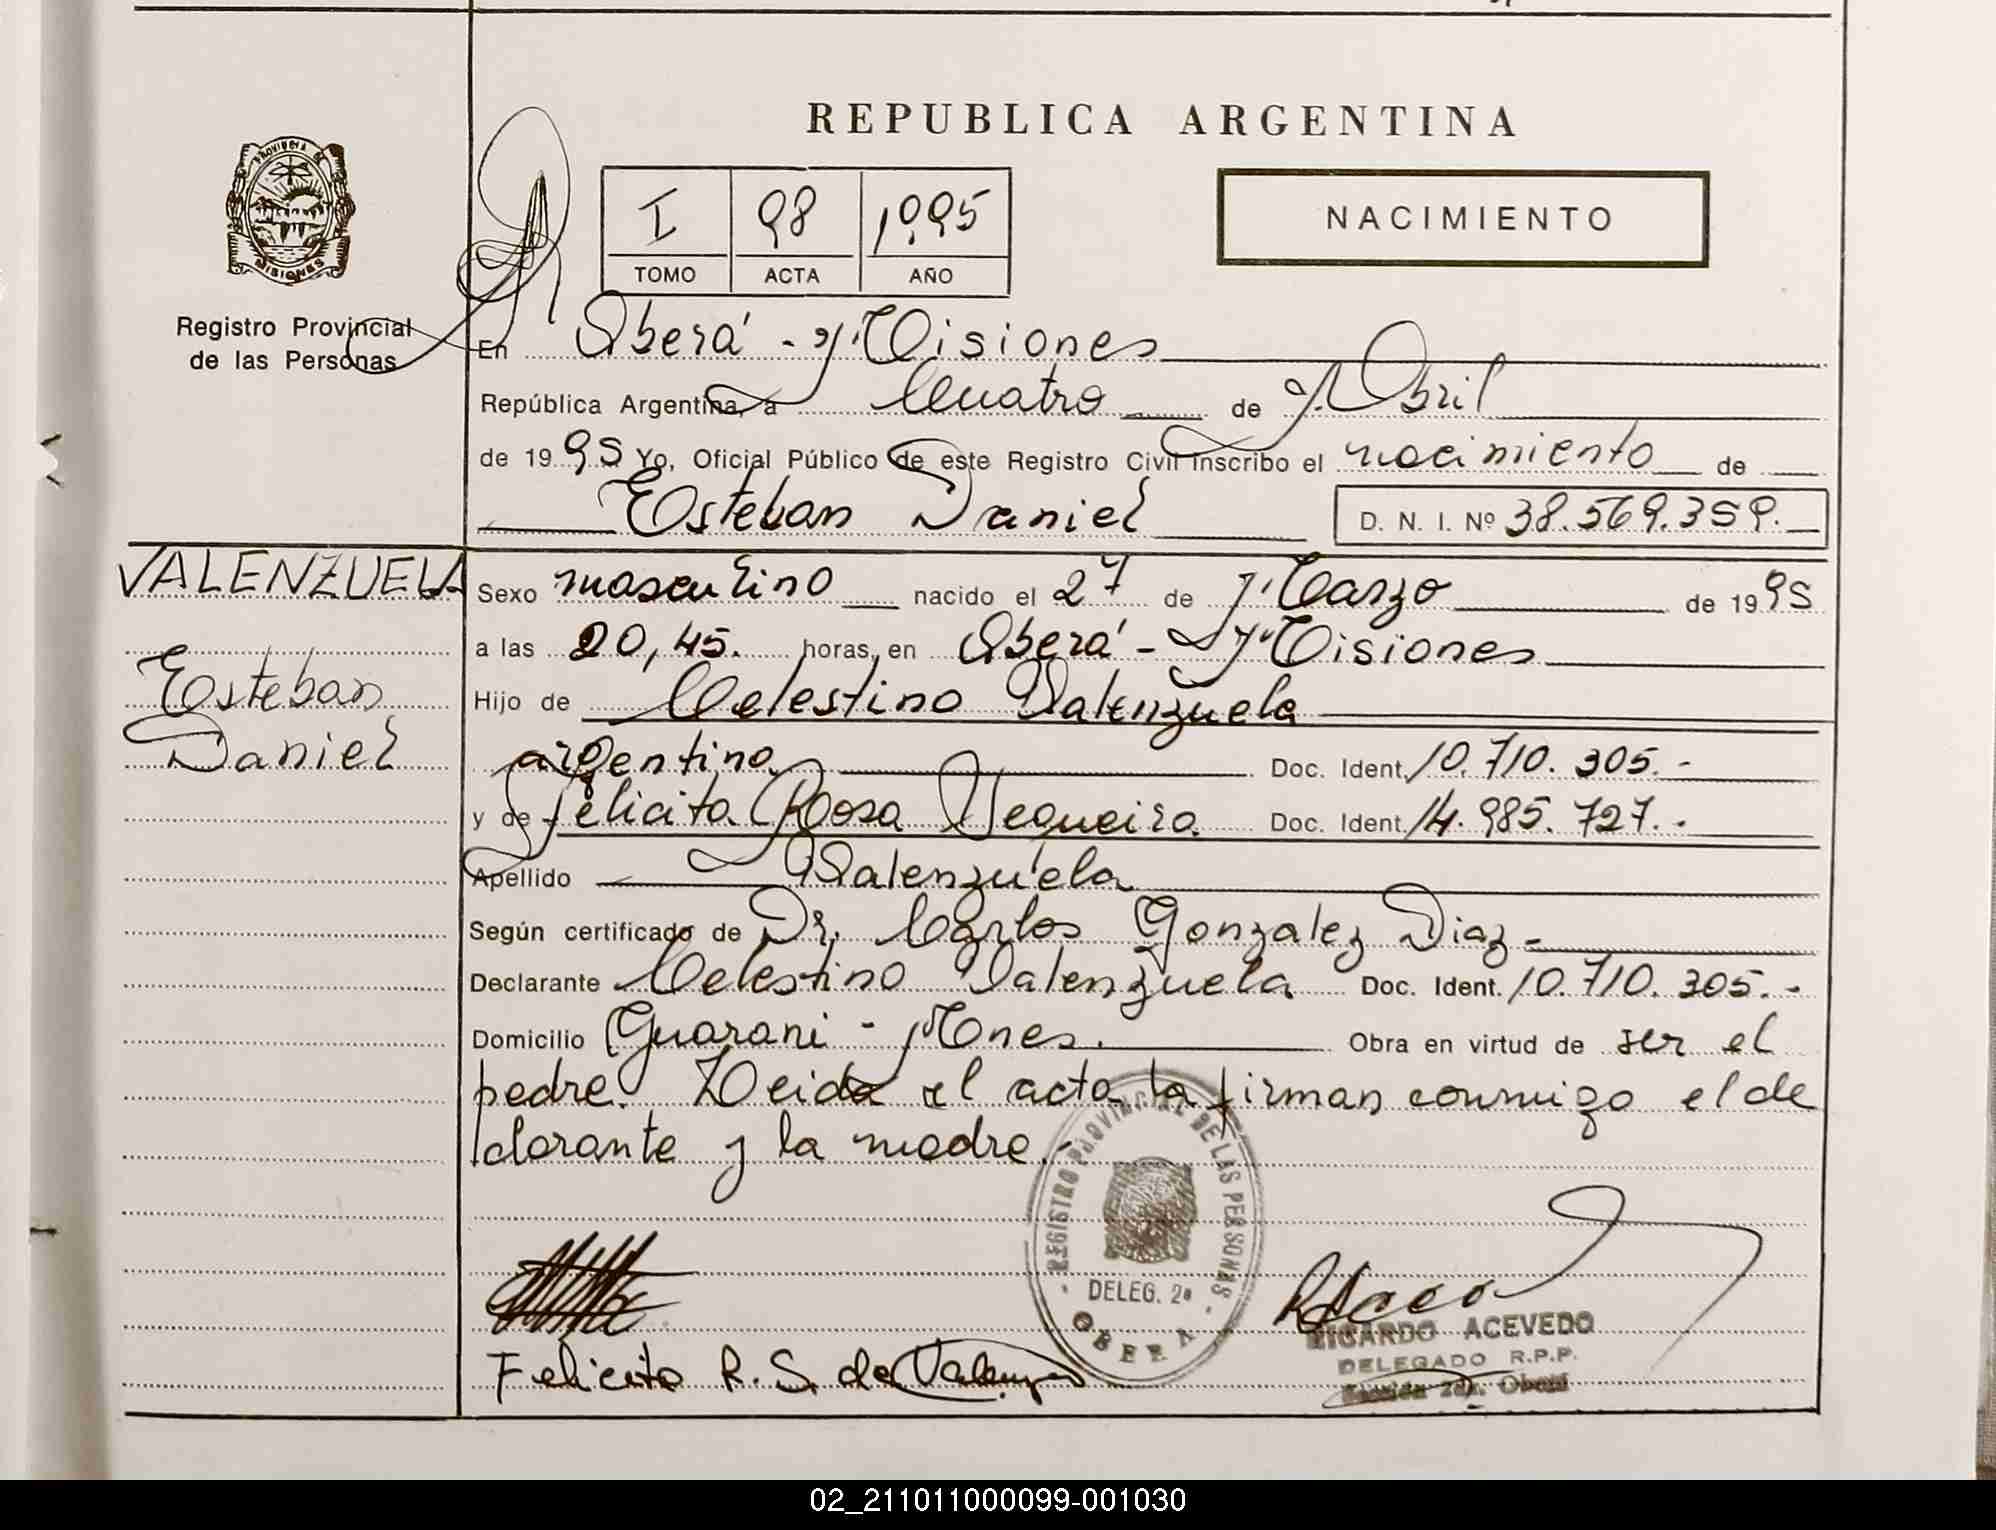 REPUBLICA ARGENTINA
PROVINCIA DE MISIONES
Registro Provincial
de las Personas
I 98 1995
TOMO ACTA AÑO
NACIMIENTO
En Oberá - Misiones
República Argentina, a Cuatro de Abril
de 1995 Yo, Oficial Público de este Registro Civil inscribo el nacimiento de
Esteban Daniel D. N. I. Nº 38.569.359.
VALENZUELA
Esteban
Daniel
Sexo masculino nacido el 27 de Marzo de 1995
a las 20,45. horas, en Oberá - Misiones
Hijo de Celestino Valenzuela
argentino Doc. Ident. 10.710.305.-
y de Felicita Roosa Sequeira Doc. Ident. 14.985.727.-
Apellido Valenzuela
Según certificado de Dr. Carlos Gonzalez Diaz-
Declarante Celestino Valenzuela Doc. Ident. 10.710.305.-
Domicilio Guarani - Mnes. Obra en virtud de ser el
padre. Leida el acta la firman conmigo el de
clarante y la madre.-
REGISTRO PROVINCIAL DE LAS PERSONAS
DELEG. 2ª
OBERA
Felicita R. S. de Valenzuela
RICARDO ACEVEDO
DELEGADO R.P.P.
2da. Oberá
02_211011000099-001030